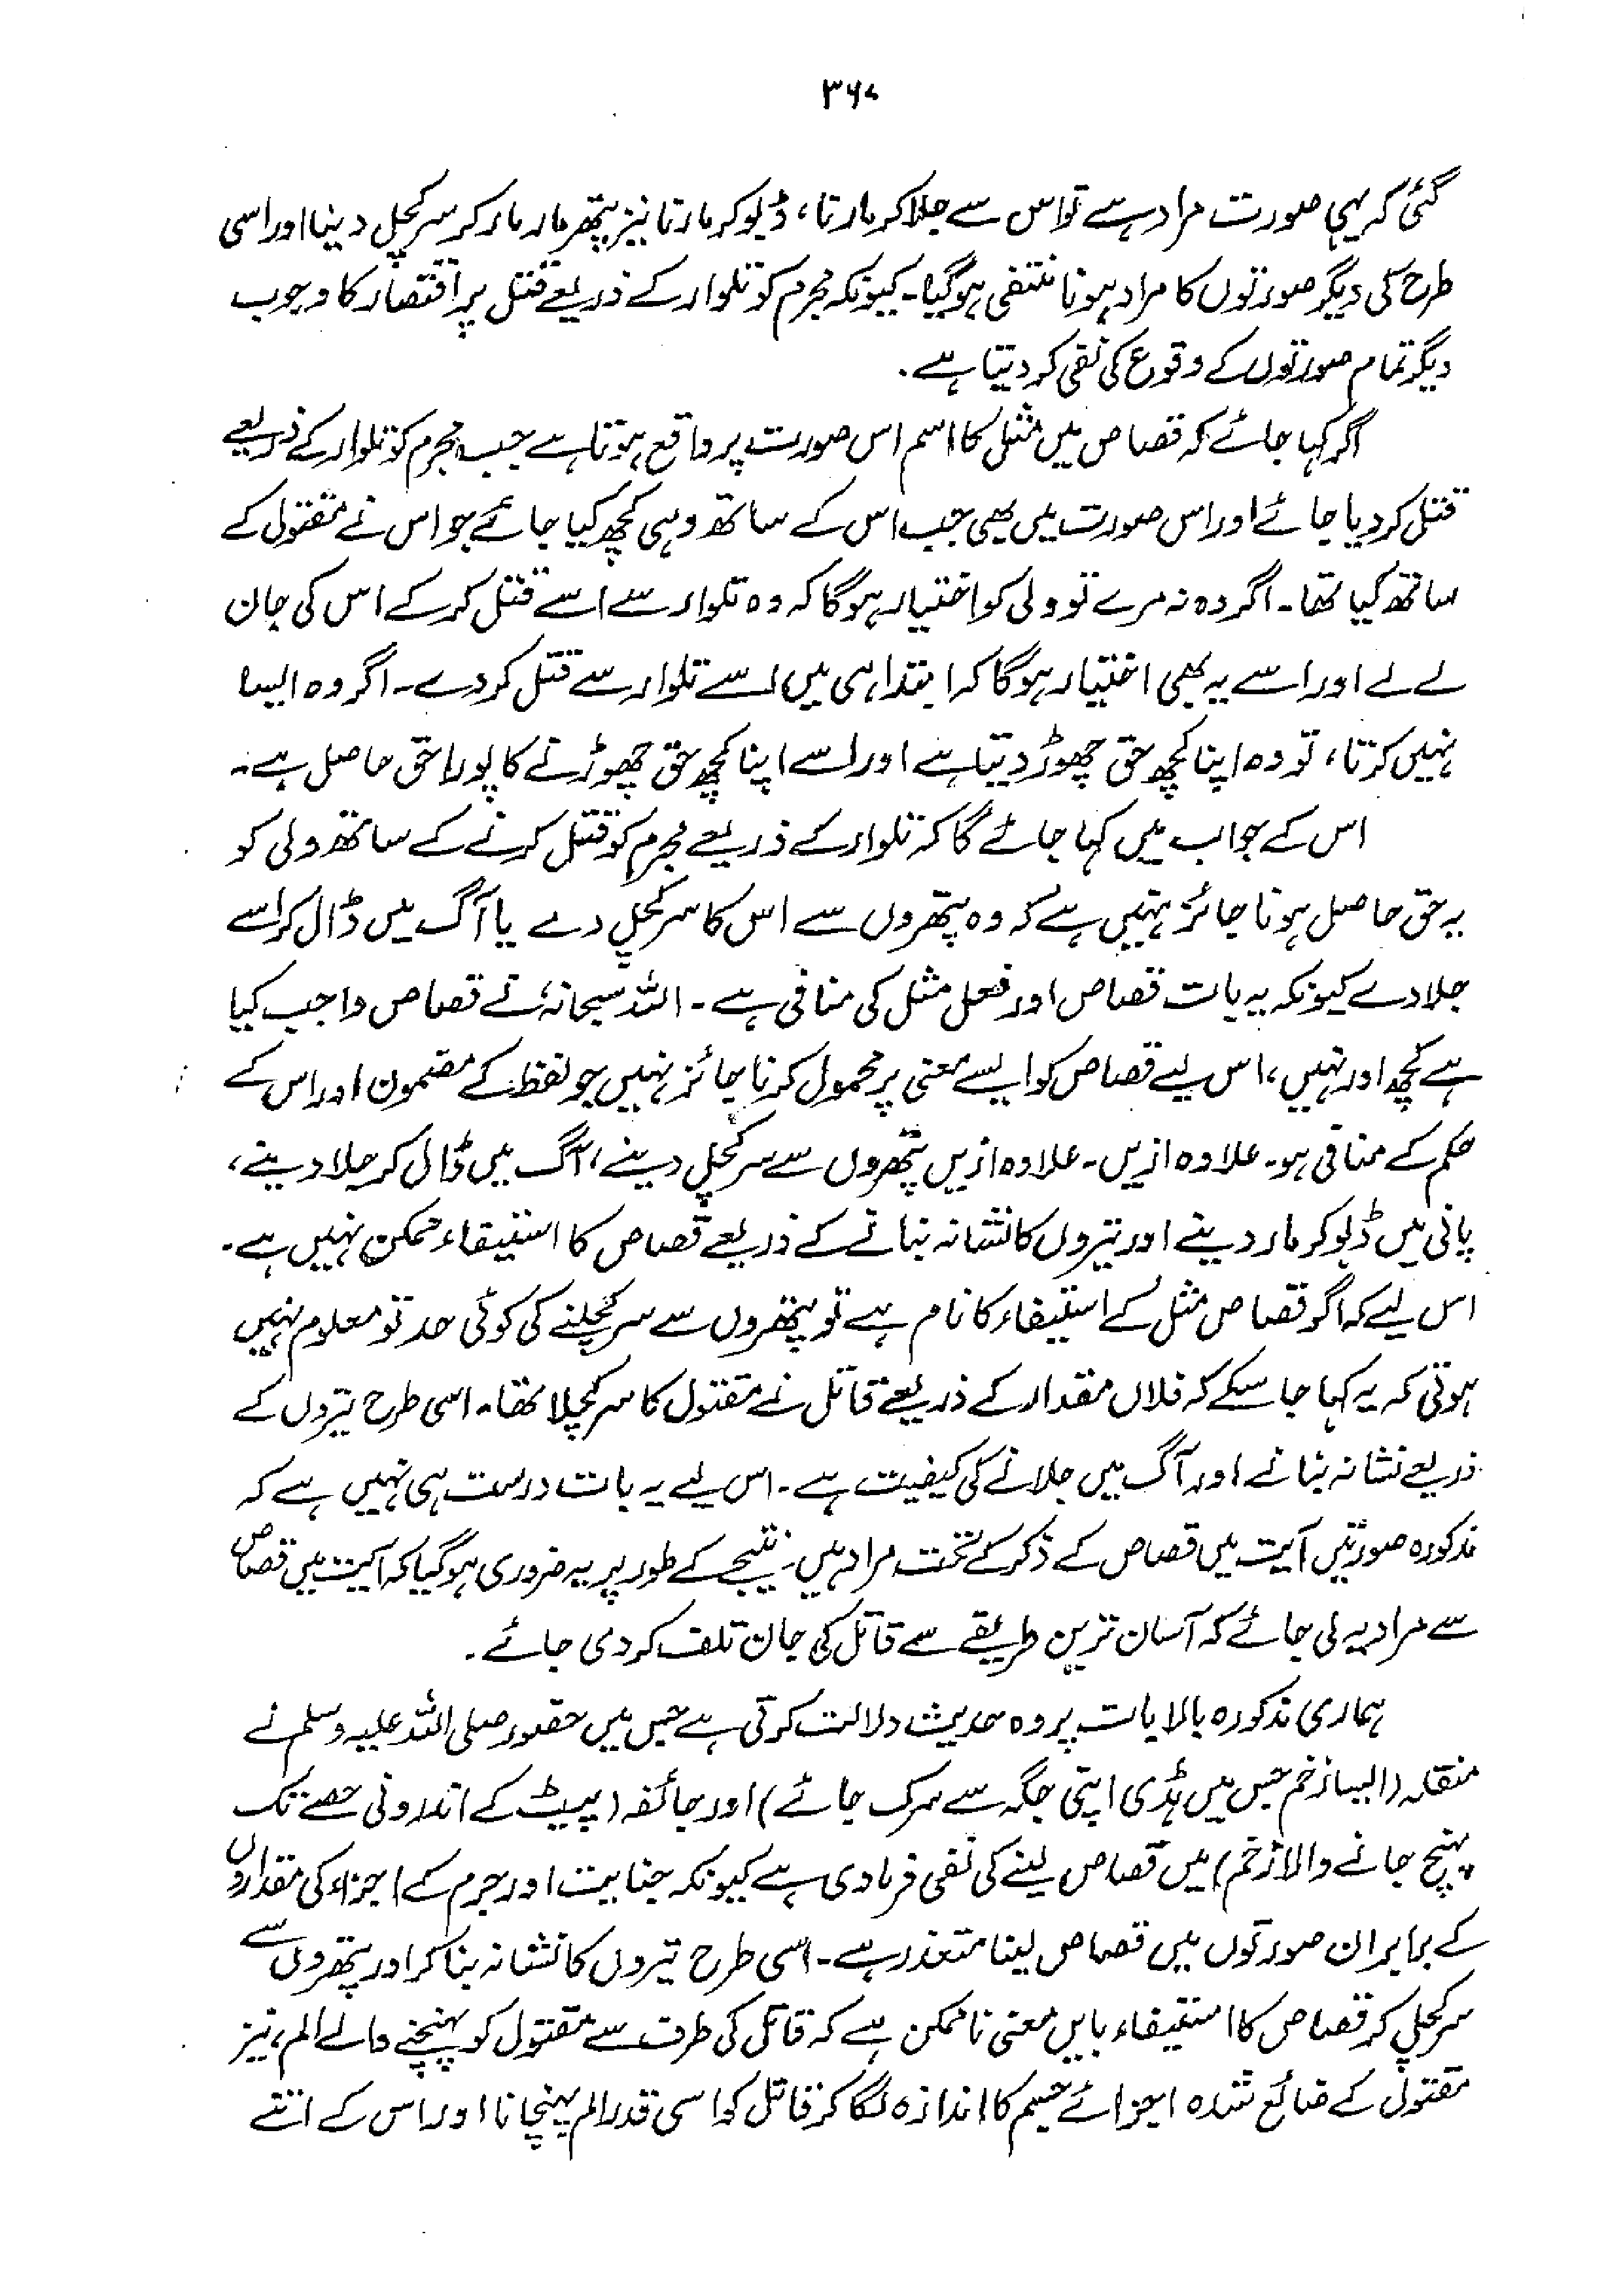 ۳۶۷
گئی کہ یہی صورت مراد ہے تو اس سے جلا کر مارنا، ڈبو کر مارنا نیز پتھر مار مار کر سر کچل دینا اور اسی
طرح کی دیگر صورتوں کا مراد ہونا منتفی ہوگیا۔ کیونکہ مجرم کو تلوار کے ذریعے قتل پر اقتصار کا وجوب
دیگر تمام صورتوں کے وقوع کی نفی کر دیتا ہے۔
اگر کہا جائے کہ قصاص میں مثل کا اسم اس صورت پر واقع ہوتا ہے جب مجرم کو تلوار کے ذریعے
قتل کر دیا جائے اور اس صورت میں بھی جب اس کے ساتھ وہی کچھ کیا جائے جو اس نے مقتول کے
ساتھ کیا تھا۔ اگر وہ نہ مرے تو ولی کو اختیار ہوگا کہ وہ تلوار سے اسے قتل کر کے اس کی جان
لے لے اور اسے یہ بھی اختیار ہوگا کہ ابتدا ہی میں اسے تلوار سے قتل کر دے۔ اگر وہ ایسا
نہیں کرتا، تو وہ اپنا کچھ حق چھوڑ دیتا ہے اور اسے اپنا کچھ حق چھوڑنے کا پورا حق حاصل ہے۔
اس کے جواب میں کہا جائے گا کہ تلوار کے ذریعے مجرم کو قتل کرنے کے ساتھ ولی کو
یہ حق حاصل ہونا جائز نہیں ہے کہ وہ پتھروں سے اس کا سر کچل دے یا آگ میں ڈال کر اسے
جلا دے کیونکہ یہ بات قصاص اور فعل مثل کی منافی ہے۔ اللہ سبحانہٗ نے قصاص واجب کیا
ہے کچھ اور نہیں، اس لیے قصاص کو ایسے معنی پر محمول کرنا جائز نہیں جو لفظ کے مضمون اور اس کے
حکم کے منافی ہو۔ علاوہ ازیں۔ علاوہ ازیں پتھروں سے سر کچل دینے، آگ میں ڈال کر جلا دینے،
پانی میں ڈبو کر مار دینے اور تیروں کا نشانہ بنانے کے ذریعے قصاص کا استیفاء ممکن نہیں ہے۔
اس لیے کہ اگر قصاص مثل کے استیفاء کا نام ہے تو پتھروں سے سر کچلنے کی کوئی حد تو معلوم نہیں
ہوتی کہ یہ کہا جا سکے کہ فلاں مقدار کے ذریعے قاتل نے مقتول کا سر کچلا تھا۔ اسی طرح تیروں کے
ذریعے نشانہ بنانے اور آگ میں جلانے کی کیفیت ہے۔ اس لیے یہ بات درست ہی نہیں ہے کہ
مذکورہ صورتیں آیت میں قصاص کے ذکر کے تحت مراد ہیں۔ نتیجے کے طور پر یہ ضروری ہوگیا کہ آیت میں قصاص
سے مراد یہ لی جائے کہ آسان ترین طریقے سے قاتل کی جان تلف کر دی جائے۔
ہماری مذکورہ بالا بات پر وہ حدیث دلالت کرتی ہے جس میں حضور صلی اللہ علیہ وسلم نے
منقلہ (ایسا زخم جس میں ہڈی اپنی جگہ سے سرک جائے) اور جائفہ (پیٹ کے اندرونی حصے تک
پہنچ جانے والا زخم) میں قصاص لینے کی نفی فرما دی ہے کیونکہ جنایت اور جرم کے اجزاء کی مقداروں
کے برابر ان صورتوں میں قصاص لینا متعذر ہے۔ اسی طرح تیروں کا نشانہ بنا کر اور پتھروں سے
سر کچل کر قصاص کا استیفاء بایں معنی ناممکن ہے کہ قاتل کی طرف سے مقتول کو پہنچنے والے الم، نیز
مقتول کے ضائع شدہ اجزائے جسم کا اندازہ لگا کر قاتل کو اسی قدر الم پہنچانا اور اس کے اتنے